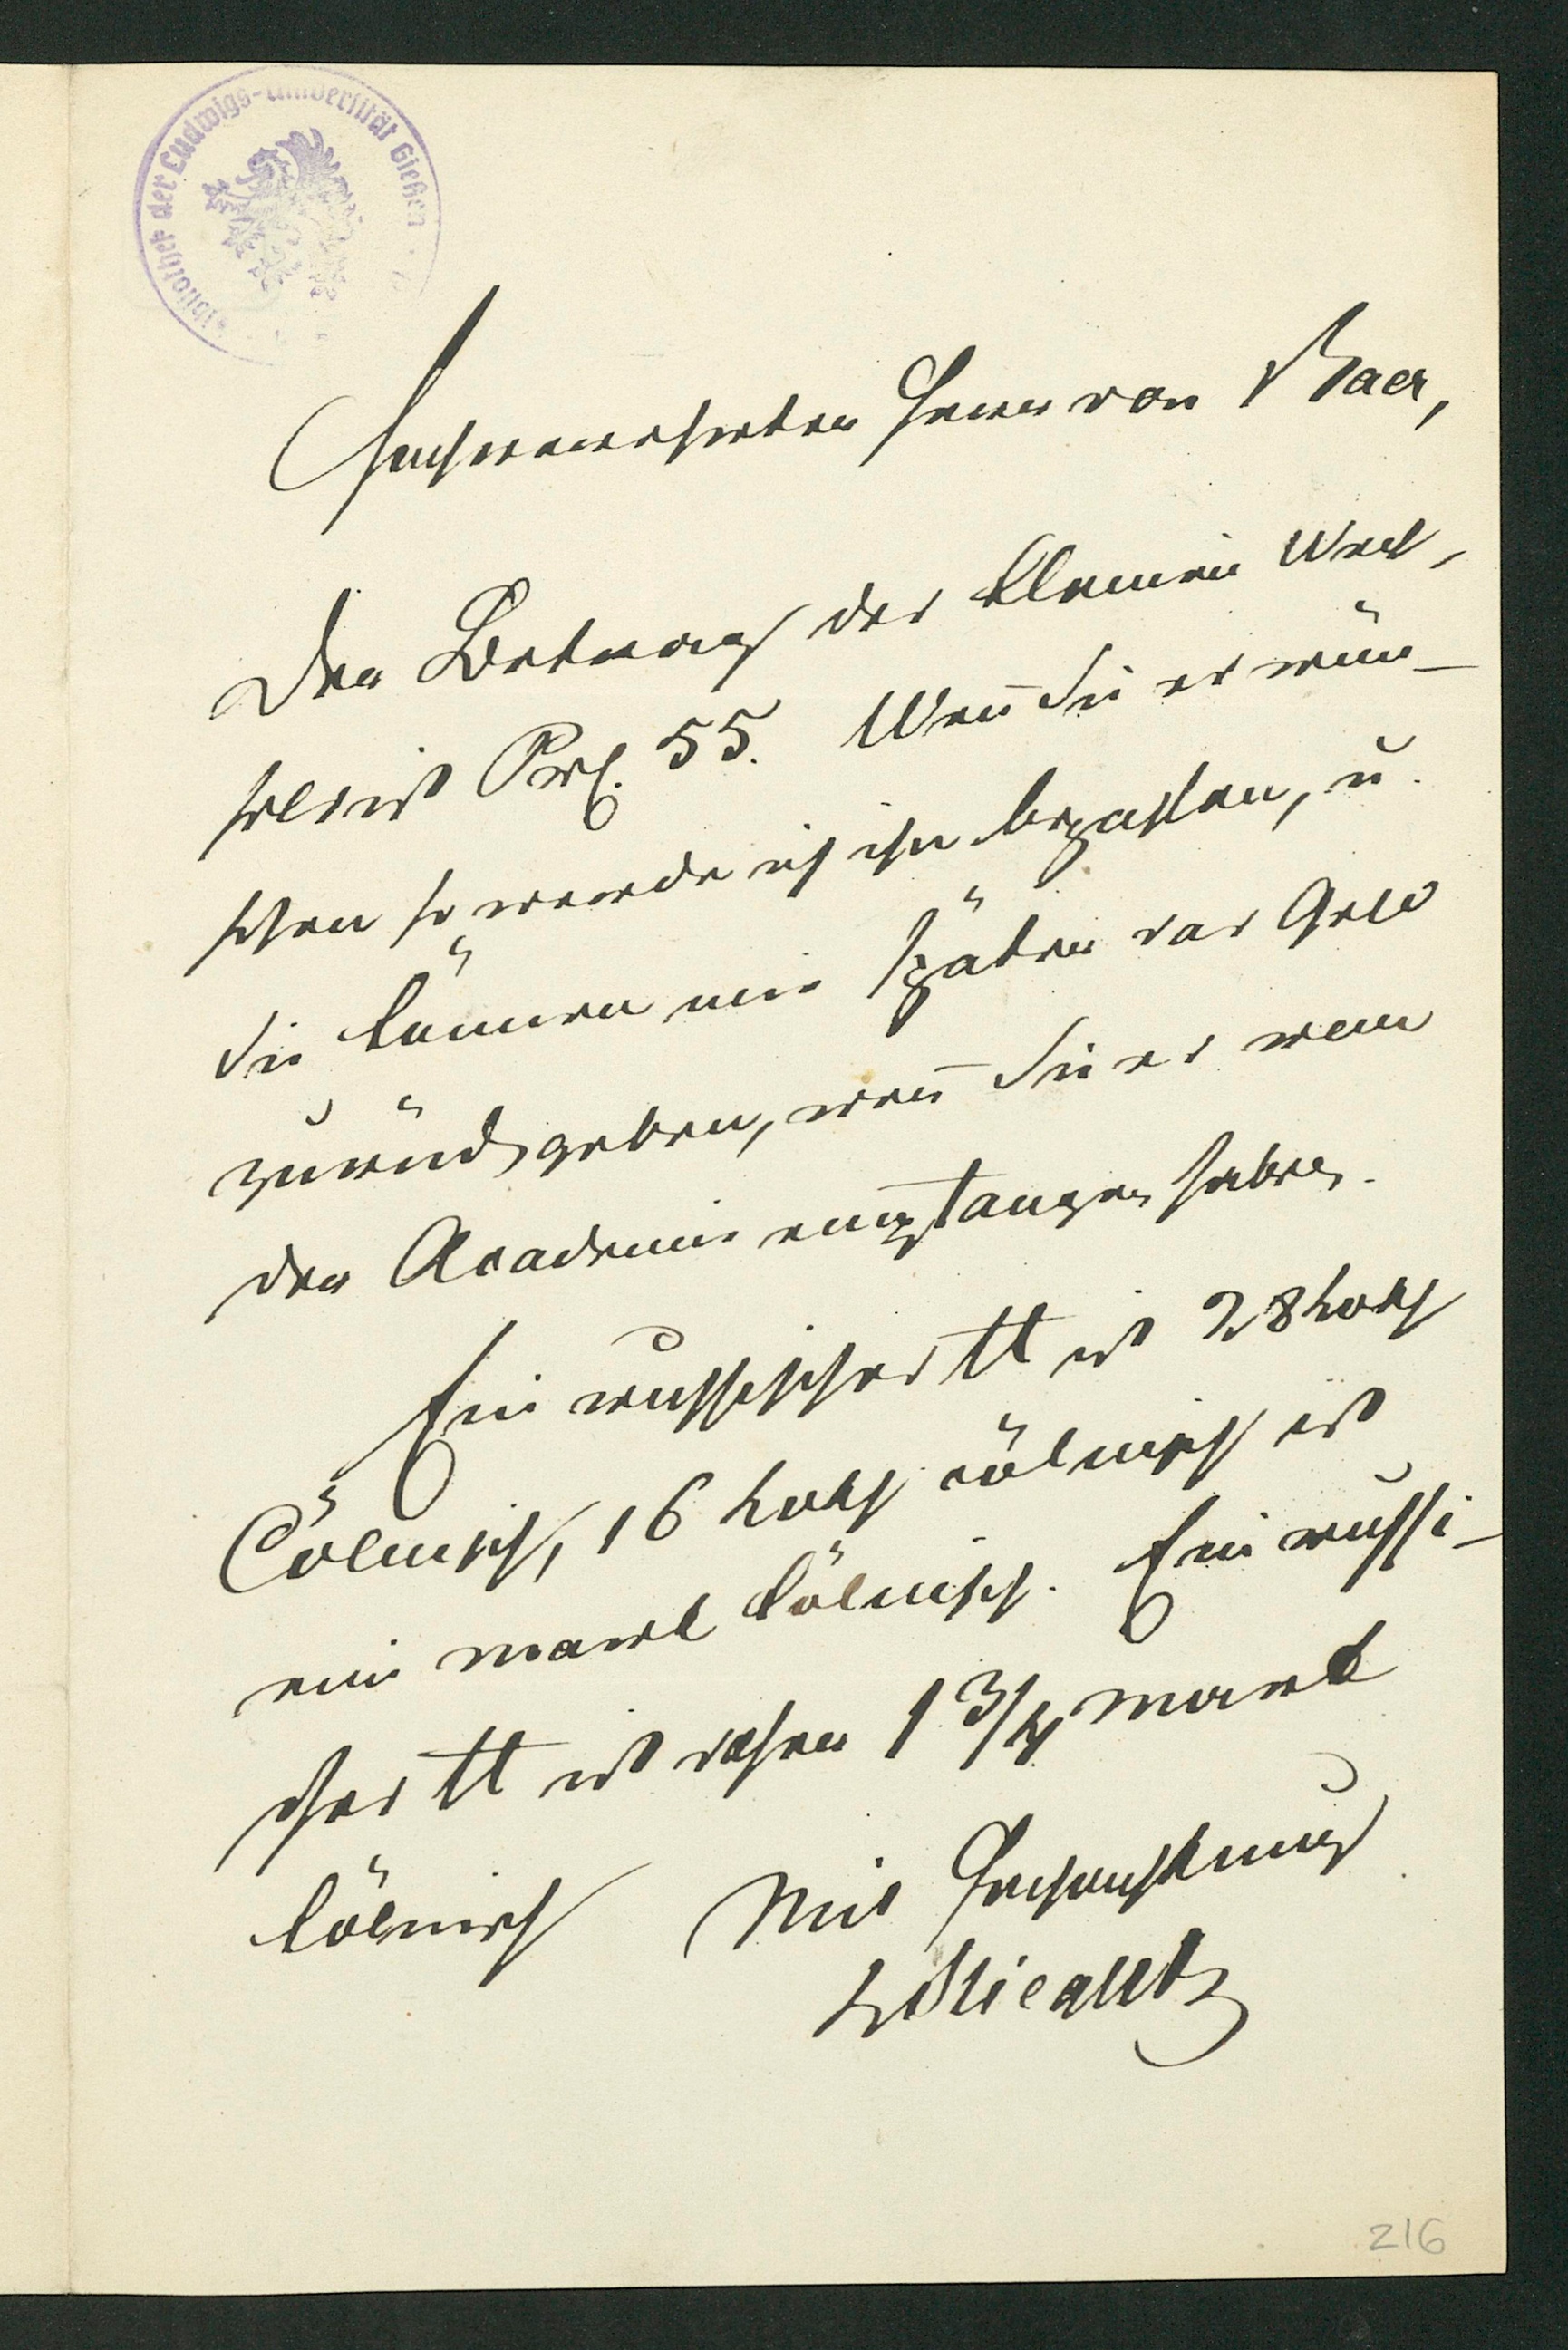 Bibliothek der Ludwigs-Universität Gießen
Hochverehrter Herr von Baer,
Der Betrag des kleinen Wech-
sels ist 55. Wen̄ Sie es wün-
schen so werde ich ihn bezahlen, u.
Sie können mir später das Geld
zurückgeben, wen̄ Sie es von
der Academie empfangen haben.
Ein russisches ℔ ist 28 Loth
Cölnisch, 16 Loth cölnisch ist
eine Mark kölnisch. Ein russi-
sches ℔ ist daher 1 3/4 Mark
kölnisch Mit Hochachtung
Stieglitz
216